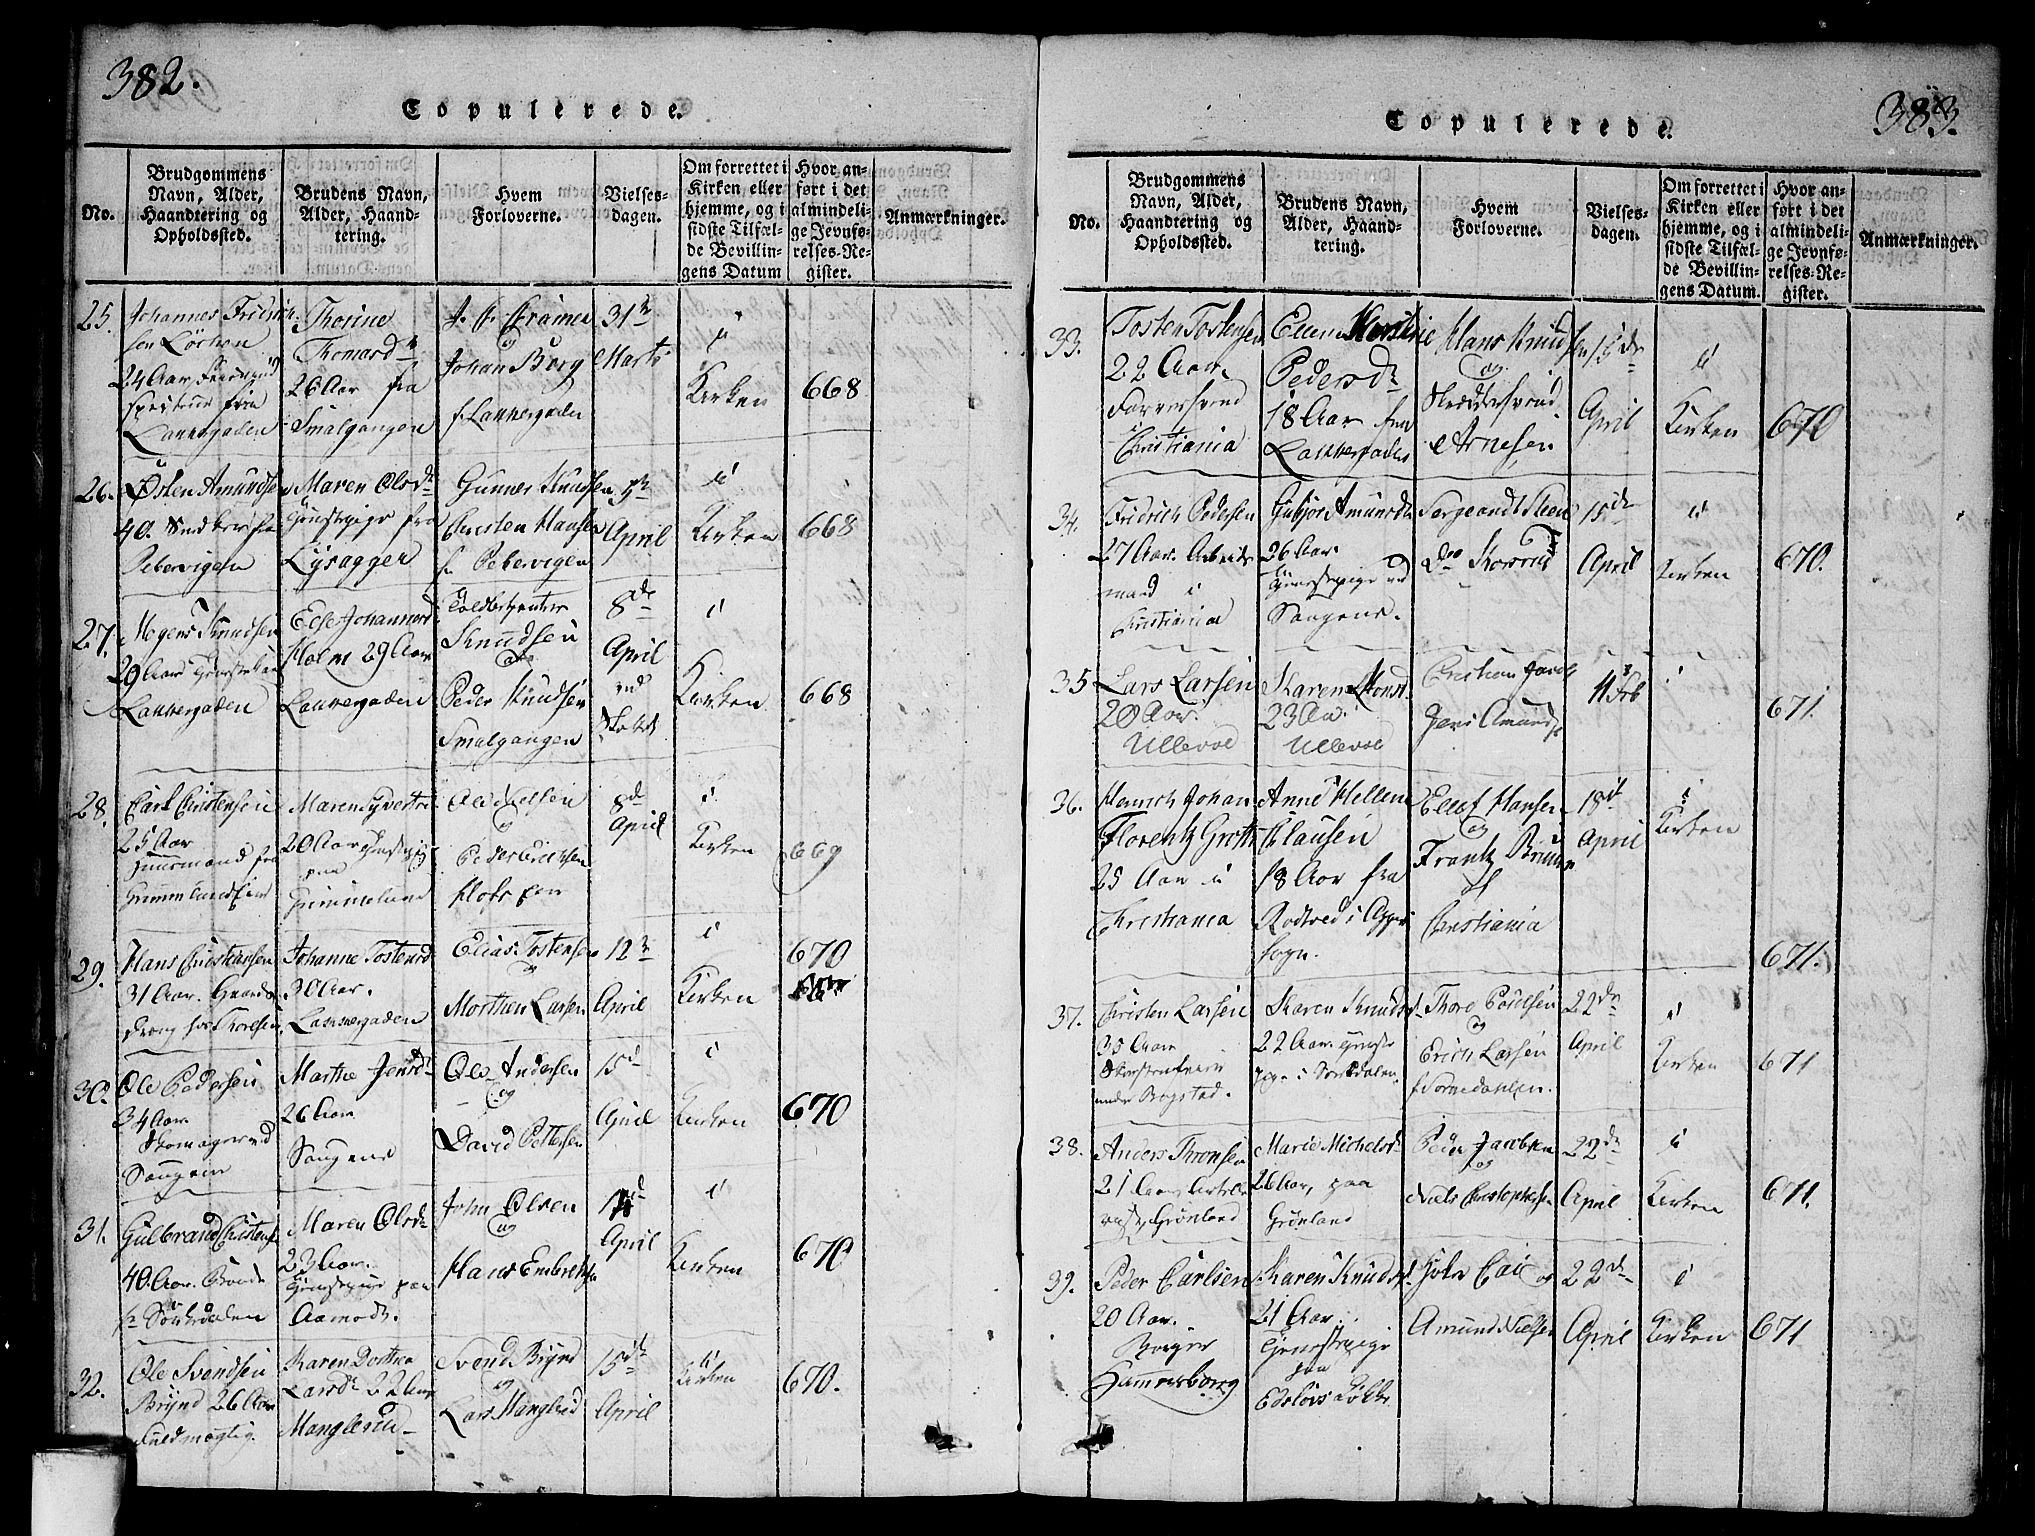 382.
Copulerede.
No.
Brudgommens
Navn, Alder,
Haandtering og
Opholdssted.
Brudens Navn,
Alder, Haand-
tering.
Hvem
Forloverne.
Vielses-
dagen.
Om forrettet i
Kirken eller
hjemme, og i
sidste Tilfæl-
de Bevillin-
gens Datum
Hvor an-
ført i det
almindeli-
ge Jevnfø-
relses-Re-
gister.
Anmærkninger.
25.
Johannes Fridrich
sen Löchen
24 Aar
Lakkergaden
Thorine
Thomasd
26 Aar fra
Smalgangen
J. C. Cramer
og
Johan Borg
f. Lakkergaden
31
Marts
i
Kirken
668
26.
Østen Amundsen
40. Snedker fra
Pebervigen
Maren Olsdr
Tjenstepige fra
Lysagger
Gunner Knudsen
Christen Hansen
f. Pebervigen
April
i
Kirken
668
27.
Mogens Knudsen
29 Aar
Lakkergaden
Else Johannesd
Holm 29 Aar
Lakkergaden
Toldbetjenter
Knudsen
og
Peder Knudsen
Smalgangen
8de
April
i
Kirken
668
28.
Carl Christensen
25 Aar
Huusmand fra
Maren Syvertsd
20 Aar
paa
Ole Nielsen
og
Peder Erichsen
8d
April
i
Kirken
669
29.
Hans Christiansen
31 Aar. Gaards
dreng hos Thoresen
Johanne Tostensd
30 Aar.
Lakkergaden
Elias Tostensen
og
Morthen Larsen
12
April
i
Kirken
670
30.
Ole Pedersen
34 Aar
Skomager ved
Sougein
Marthe Jensd
26 Aar
Sougene
Ole Andersen
og
David Pettersen
15d
April
i
Kirken
670
31.
Gulbrand Christens
40 Aar. Bonde
fr Sørkedalen
Maren Olsdr
23 Aar.
Tjenstepige paa
Aamodt.
John Olsen
og
Hans Embretsen
April
i
Kirken
670
32.
Ole Svendsen
Brynd 26 Aar
Fuldmægtig.
Karen Dorthea
Larsdr 22 Aar
Manglerud
Svend Brynd
og
Lars Manglrud
15de
April
i
Kirken
670.
383.
Copulerede.
No.
Brudgommens
Navn, Alder,
Haandtering og
Opholdssted.
Brudens Navn,
Alder, Haand-
tering.
Hvem
Forloverne.
Vielses-
dagen.
Om forrettet i
Kirken eller
hjemme, og i
sidste Tilfæl-
de Bevillin-
gens Datum.
Hvor an-
ført i det
almindeli-
ge Jevnfø-
relses-Re-
gister.
Anmærkninger.
33.
Tosten Tostensen
22 Aar
Farversvend
i
Christiania
Ellen
Pedersdr
18 Aar fra
Lakkergaden
Hans Knudsen
og
Skræddersvend
Arnesen
15de
April
i
Kirken
670
34.
Fridrich Pedersen
27 Aar. Arbeids
mand i
Christiania
Gubjør Amundsdr
26 Aar.
Tjenestepige ved
Saugene.
Sergeandt Steen
Do Korsrud
15de
April
i
Kirken
670.
35
Lars Larsen
20 Aar.
Ullevold
Karen
23 Aar
Ullevold
Christian Jacobs
Jens Amunds
i
671.
36.
Henrich Johan
Florentz Groth
25 Aar i
Christiania
Anne Hellene
Clausen
18 Aar fra
Rodtved i Aggers
Sogn.
Ellef Hansen
og
Frantz Bruun
af
Christiania
18d
April
i
Kirken
671.
37.
Christen Larsen
35 Aar
under Bogstad.
Karen Knudsd
22 Aar
pige i Sørkdalen
Thore Poulsen
og
Erich Larsen
22de
April
i
Kirken
671
38.
Anders Thronsen
21 Aar
Grønland
Marie Michelsd
26 Aar, paa
Grønland
Peder Jacobsen
og
Niels Christophersen
22de
April
i
Kirken
671.
39.
Peder Carlsen
20 Aar.
Hammersborg
Karen Knudsd
21 Aar.
Tjenestepige
paa
Holn Cai og
Amund Nielsen
22de
April
i
Kirken
671